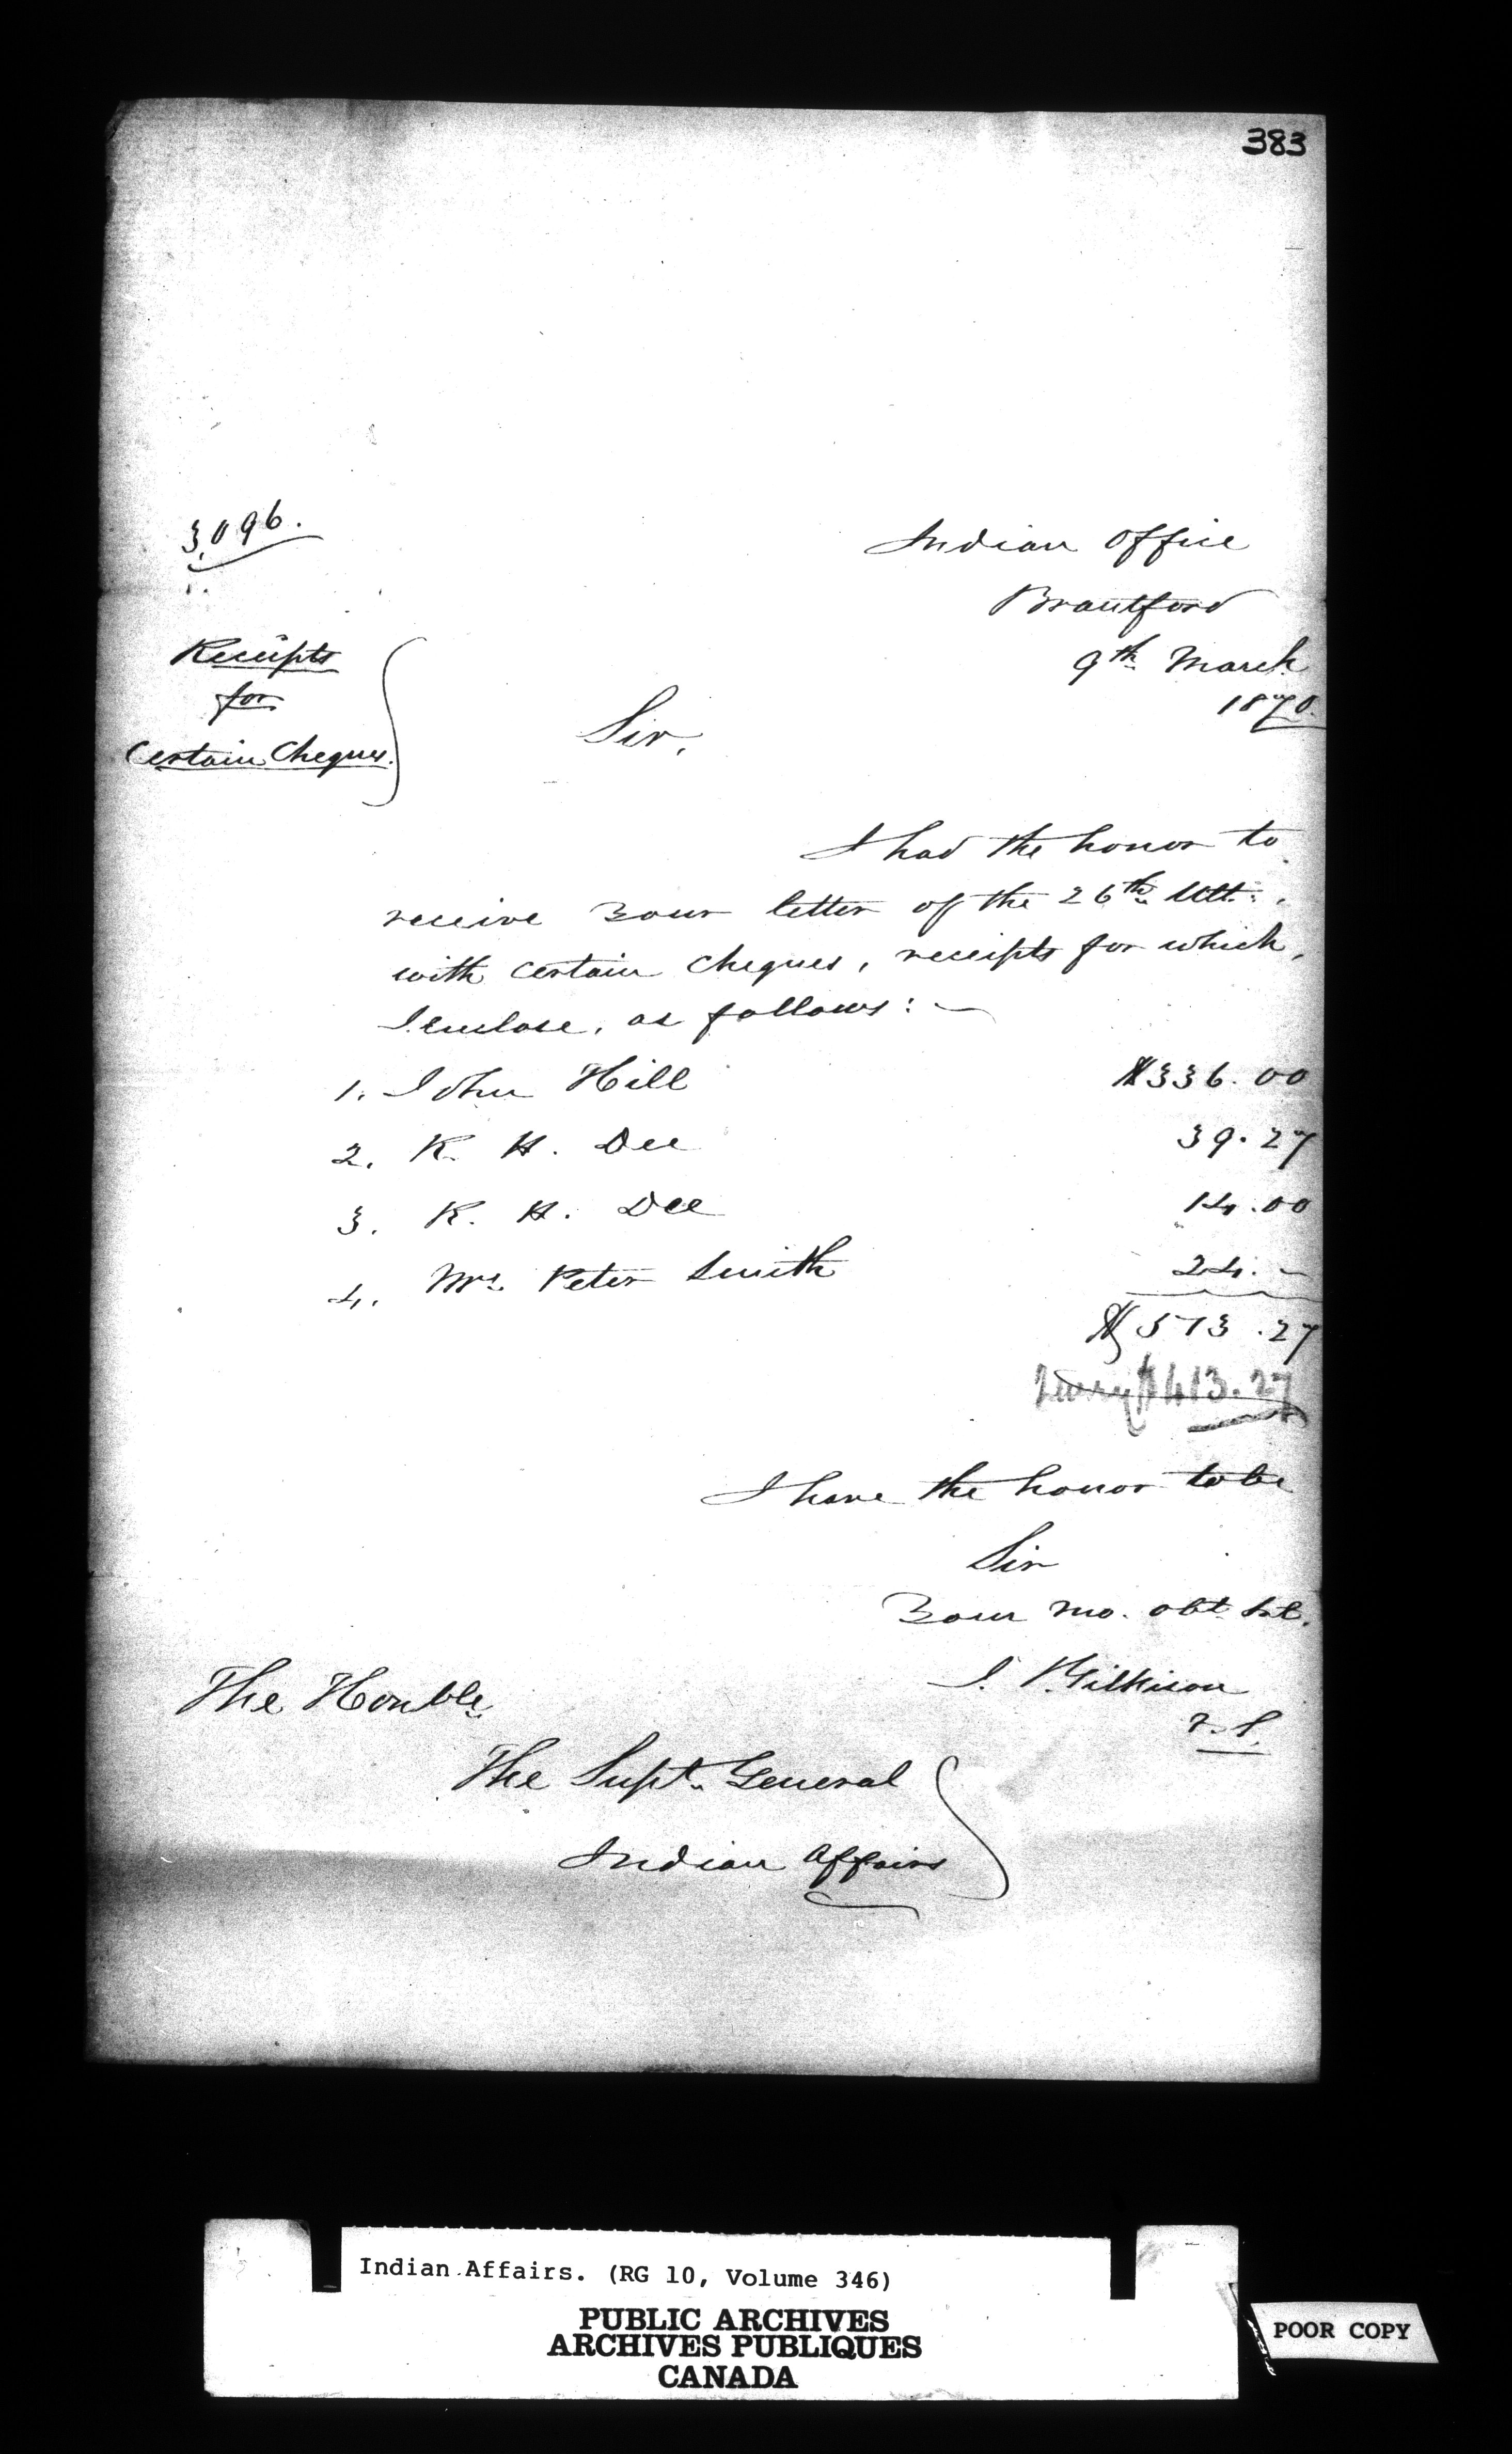 383
3,096.
Indian Office
Brantford
9th March
1870.
Receipts
for
Certain Cheques.
Sir,
I had the honor to
receive your letter of the 26th Ult.,
with certain cheques, receipts for which,
I enclose, as follows: —
1. John Hill $336.00
2. K. H. Dee 39.27
3. K. H. Dee 14.00
4. Mrs. Peter Smith 24. –
$513.27
$413.27
I have the honor to be
Sir
Your mo. obt. St.
J. Gilkison
V. S.
The Honble.
The Supt. General
Indian Affairs
Indian Affairs. (RG 10, Volume 346)
PUBLIC ARCHIVES
ARCHIVES PUBLIQUES
CANADA
POOR COPY